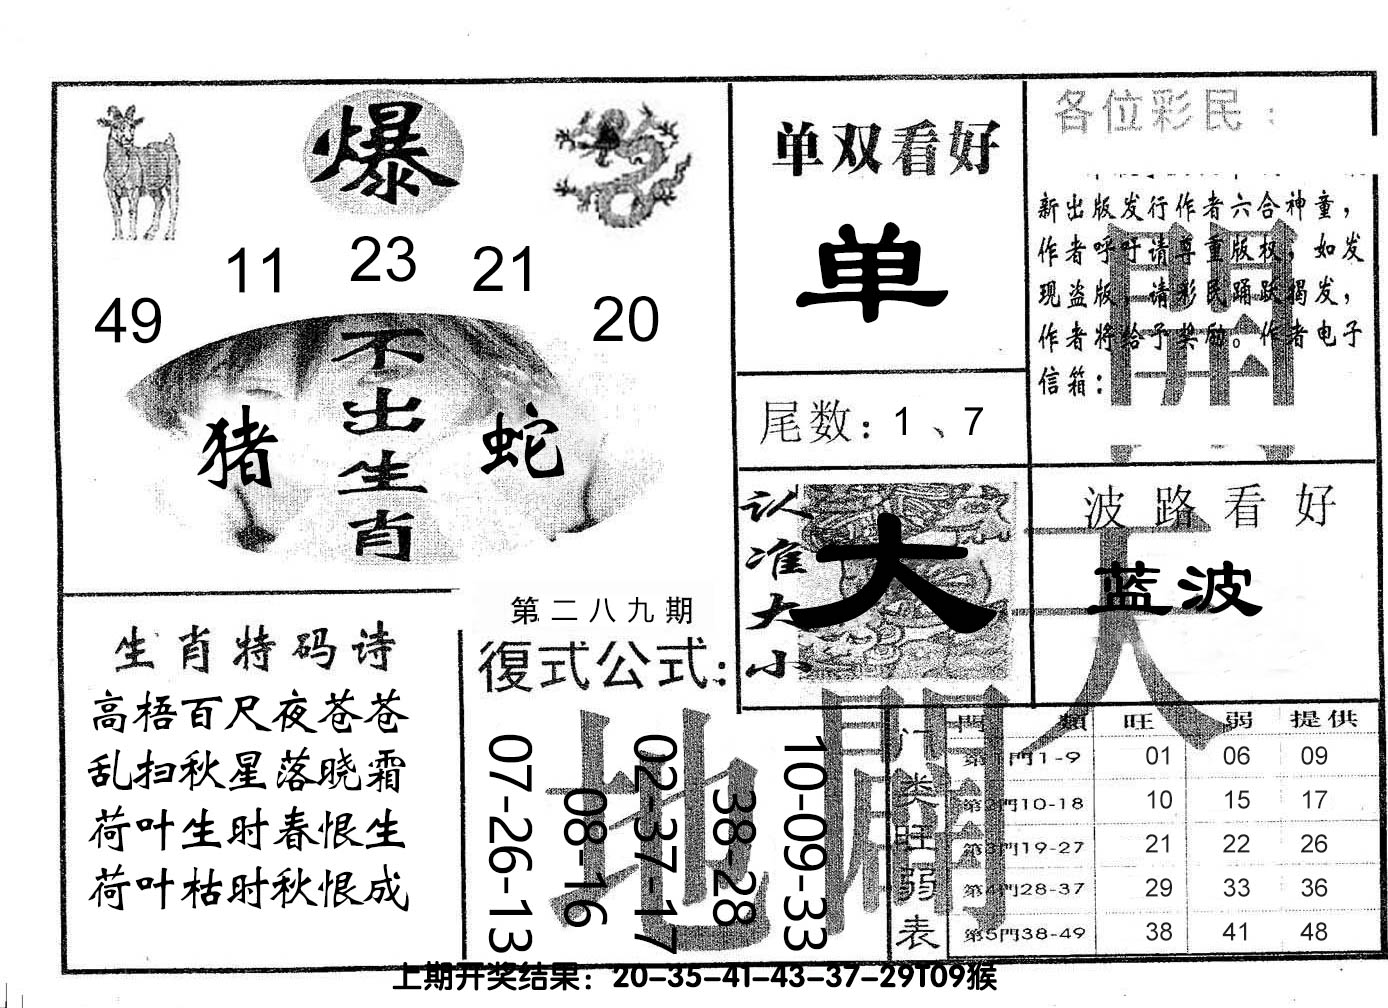 爆
49
11
23
21
20
不出生肖
猪
蛇
单双看好
单
尾数：1、7
各位彩民：
新出版发行作者六合神童，
作者呼吁请尊重版权，如发
现盗版，请彩民踊跃揭发，
作者将给予奖励。作者电子
信箱：
認准大小
大
波路看好
蓝波
生肖特码诗
高梧百尺夜苍苍
乱扫秋星落晓霜
荷叶生时春恨生
荷叶枯时秋恨成
第二八九期
復式公式：
07-26-13
08-16
02-37-17
38-28
10-09-33
天
地
開
门类旺弱表
門類 旺 弱 提供
第1門1-9 01 06 09
第2門10-18 10 15 17
第3門19-27 21 22 26
第4門28-37 29 33 36
第5門38-49 38 41 48
上期开奖结果：20-35-41-43-37-29T09猴